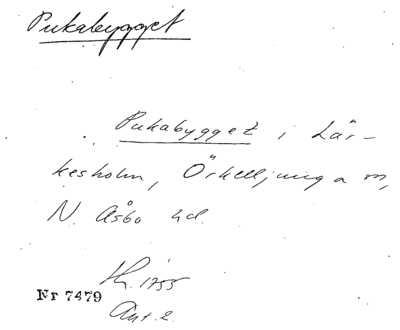 Pukabygget
Pukabygget i Lär-
kesholm, Örkelljunga sn,
N. Åsbo hd.
Kl. 1755
Nr 7479
Ant. 2.